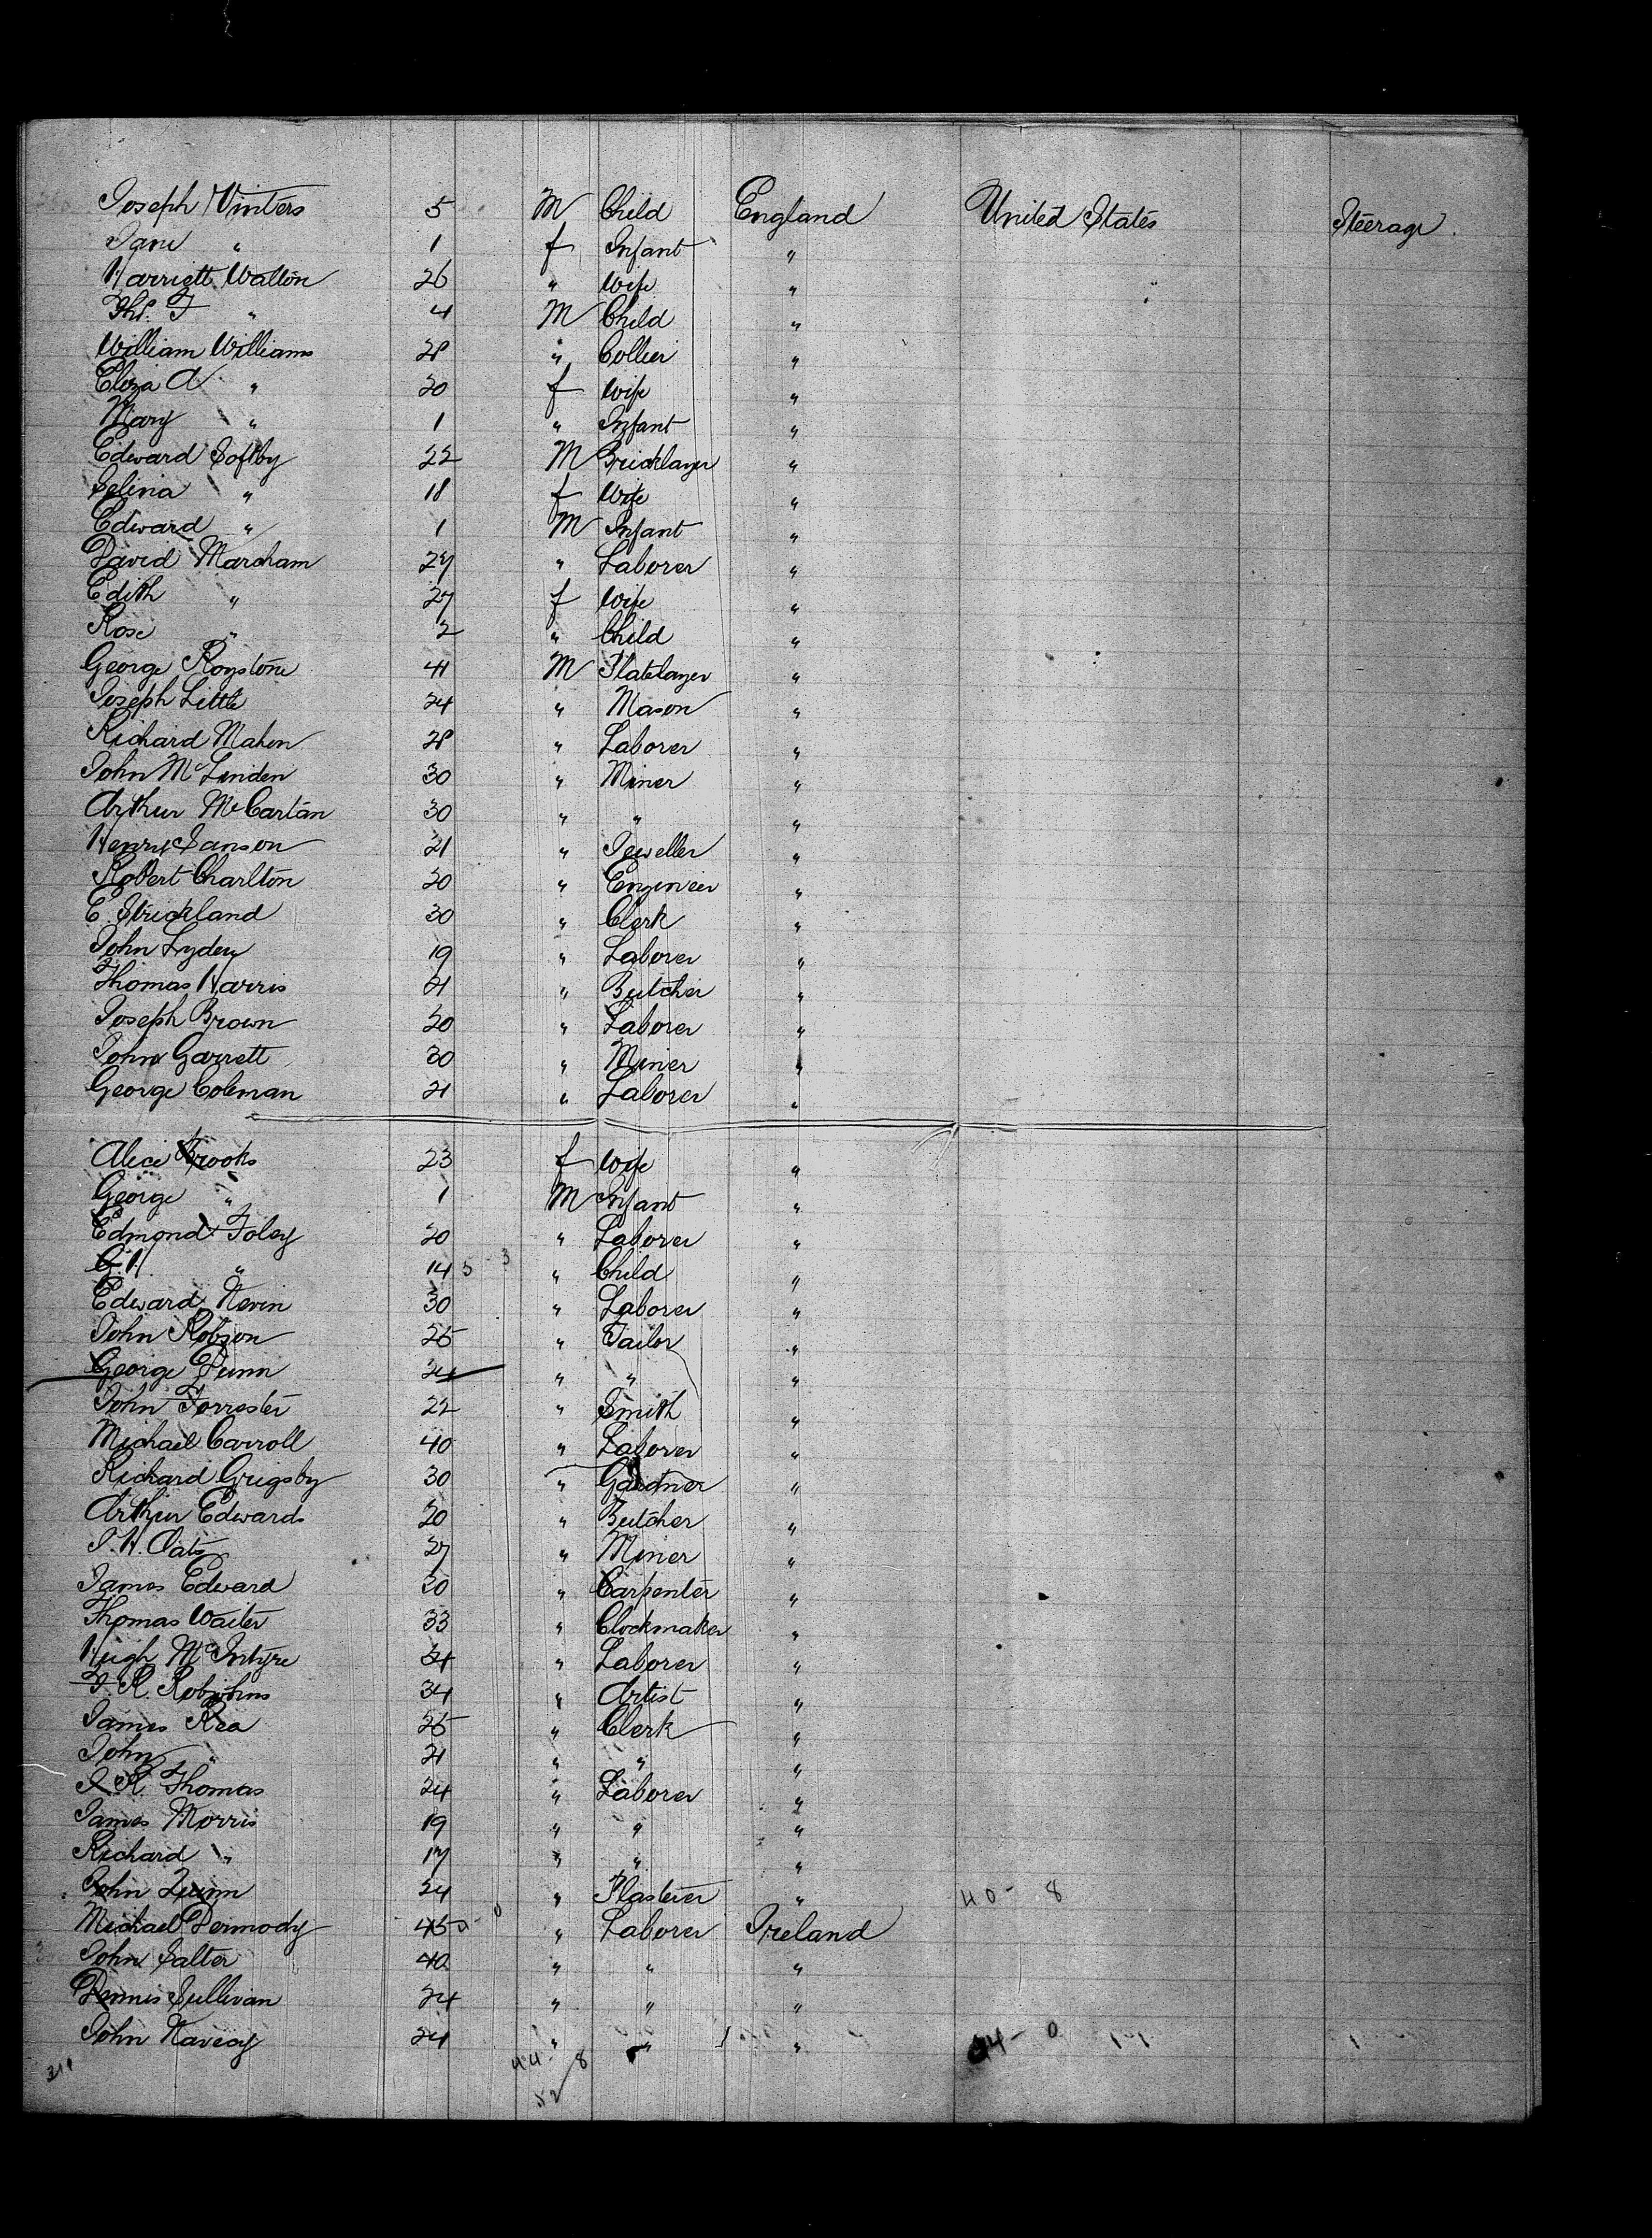 Joseph Winters 5 M Child England United States Steerage
Jane " 1 f Infant "
Harriett Walton 26 " Wife "
Thos. F " 4 M Child "
William Williams 28 " Collier "
Eliza A " 20 f Wife "
Mary " 1 " Infant "
Edward Softby 22 M Bricklayer "
Selina " 18 f Wife "
Edward " 1 M Infant "
David Marcham 27 " Laborer "
Edith " 27 f Wife "
Rose " 2 " Child "
George Roystone 41 M Platelayer "
Joseph Little 24 " Mason "
Richard Mahen 28 " Laborer "
John McLinden 30 " Miner "
Arthur McCartan 30 " " "
Henry Sanson 21 " Jeweller "
Robert Charlton 20 " Engineer "
E. Strickland 30 " Clerk "
John Lyden 19 " Laborer "
Thomas Harris 21 " Butcher "
Joseph Brown 20 " Laborer "
John Garrett 30 " Miner "
George Coleman 21 " Laborer "
Alice Brooks 23 f Wife "
George " 1 M Infant "
Edmond Foley 20 " Laborer "
G.H. " 14 5 - 3 " Child "
Edward Nevin 30 " Laborer "
John Robson 25 " Tailor "
George Dunn 24 " " "
John Forrester 22 " Smith "
Michael Carroll 40 " Laborer "
Richard Grigsby 30 " Gardner "
Arthur Edwards 20 " Butcher "
J.H. Oats 27 " Miner "
James Edward 30 " Carpenter "
Thomas Waiter 33 " Clockmaker "
Hugh McIntyre 24 " Laborer "
F. R. Robjohns 34 " Artist "
James Rea 25 " Clerk "
John " 21 " " "
J. R. Thomas 24 " Laborer "
James Morris 19 " " "
Richard " 17 " " "
John Quinn 24 " Plasterer " 40 - 8
Michael Dermody 45 " Laborer Ireland
John Salter 40 " " "
Dennis Sullivan 24 " " "
John Navecy 24 " " " 44 - 0
44 - 8
52